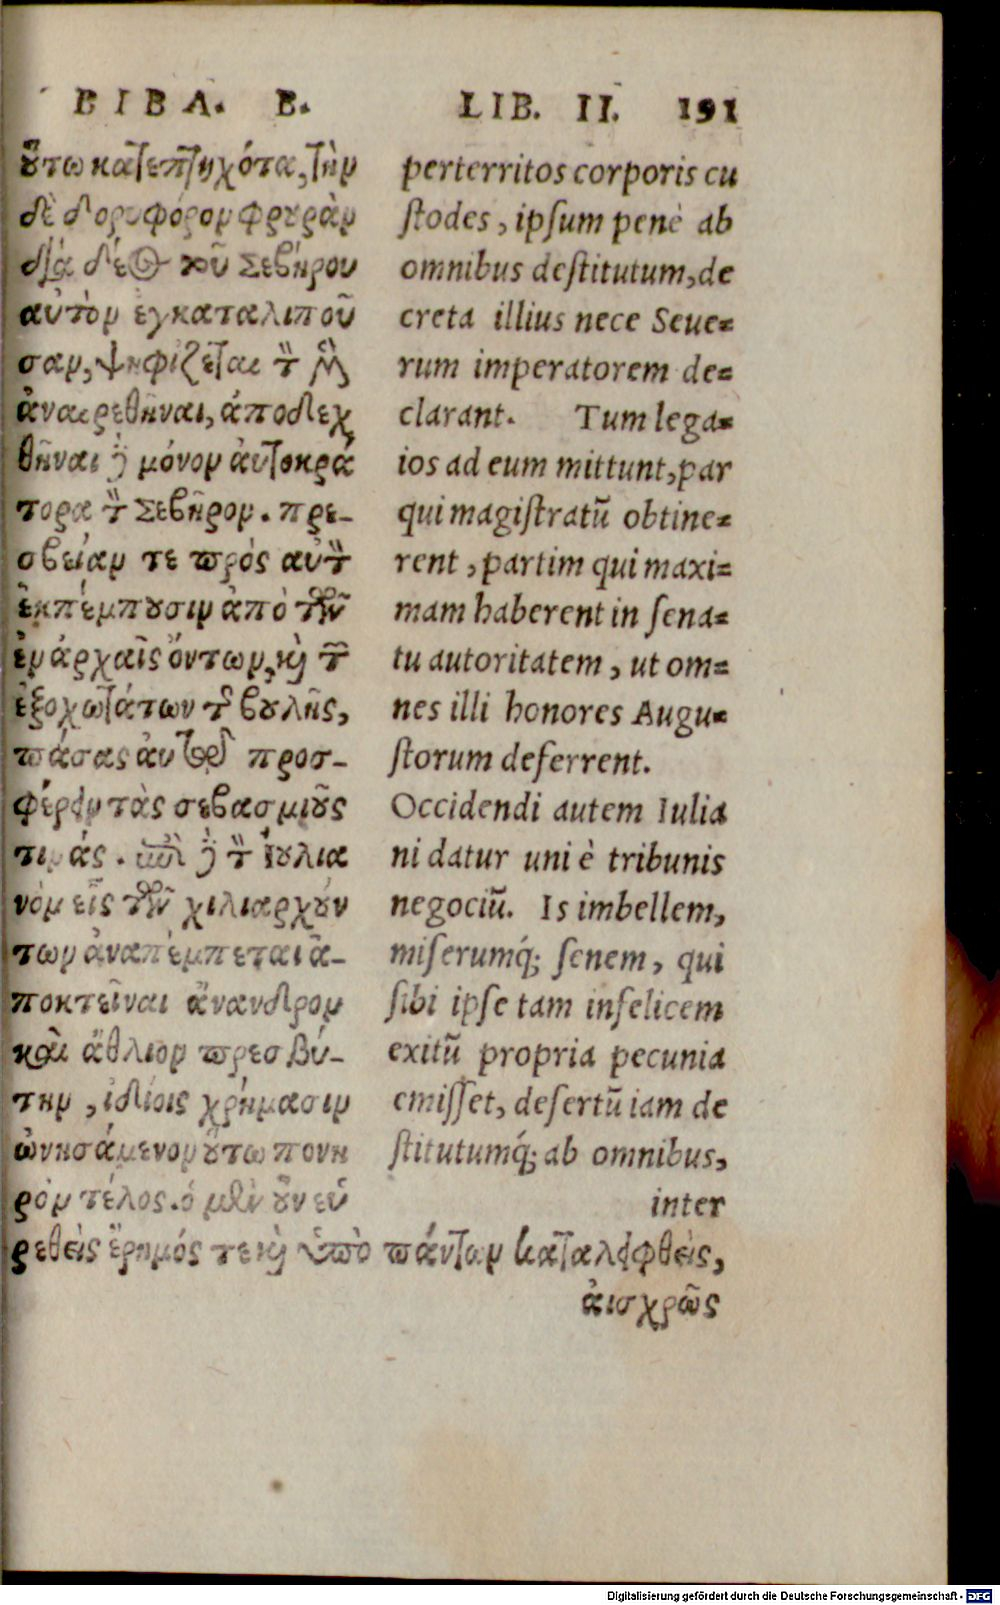 ΒΙΒΛ. Β.
ὅτω κατεπτηχότα, τὴν
δὲ δορυφόρον φρουρὰν
διὰ δέος τοῦ Σεβήρου
αὐτὸν ἐγκαταλιποῦ
σαν, ψηφίζεται τὸν μὲν
ἀναιρεθῆναι, ἀποδειχ
θῆναι δὲ μόνον αὐτοκρά
τορα τὸν Σεβῆρον. πρε-
σβείαν τε πρὸς αὐτὸν
ἐκπέμπουσιν ἀπὸ τῶν
ἐν ἀρχαῖς ὄντων, καὶ τῶν
ἐξοχωτάτων τῆς βουλῆς,
πάσας αὐτῷ προσ-
φέρειν τὰς σεβασμίους
τιμάς. ἐπὶ δὲ τὸν Ἰουλια
νὸν εἷς τῶν χιλιαρχούν
των ἀναπέμπεται ἀ-
ποκτεῖναι ἄνανδρον
καὶ ἄθλιον πρεσβύ-
την, ἰδίοις χρήμασιν
ὠνησάμενον οὕτω πονη
ρὸν τέλος. ὁ μὲν οὖν εὑ
ρεθεὶς ἔρημός τε καὶ ὑπὸ πάντων καταλειφθεὶς,
αἰσχρῶς
LIB. II. 191
perterritos corporis cu
stodes, ipsum penè ab
omnibus destitutum, de
creta illius nece Seue=
rum imperatorem de=
clarant. Tum lega=
ios ad eum mittunt, par
qui magistratũ obtine=
rent, partim qui maxi=
mam haberent in sena=
tu autoritatem, ut om=
nes illi honores Augu=
storum deferrent.
Occidendi autem Iulia
ni datur uni è tribunis
negociũ. Is imbellem,
miserumq́; senem, qui
sibi ipse tam infelicem
exitũ propria pecunia
emisset, desertũ iam de
stitutumq́; ab omnibus,
inter
Digitalisierung gefördert durch die Deutsche Forschungsgemeinschaft - DFG